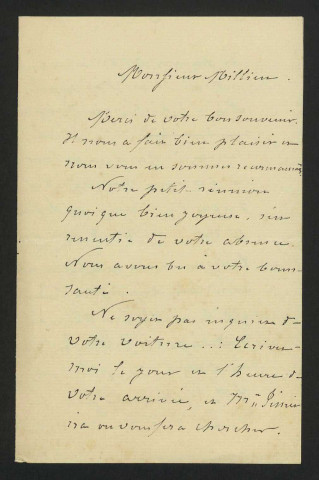 Monsieur Millien.
Merci de votre bon souvenir.
Il nous a fait bien plaisir et
nous vous en sommes reconnaissants
Notre petite réunion
quoique bien joyeuse, s'en
ressentie de votre absence
Nous avons bu à votre bonne
santé.
Ne soyez pas inquiet de
votre voiture...: Ecrivez-
moi le jour et l'heure de
votre arrivée, et Mr
ira ou vous fera chercher.